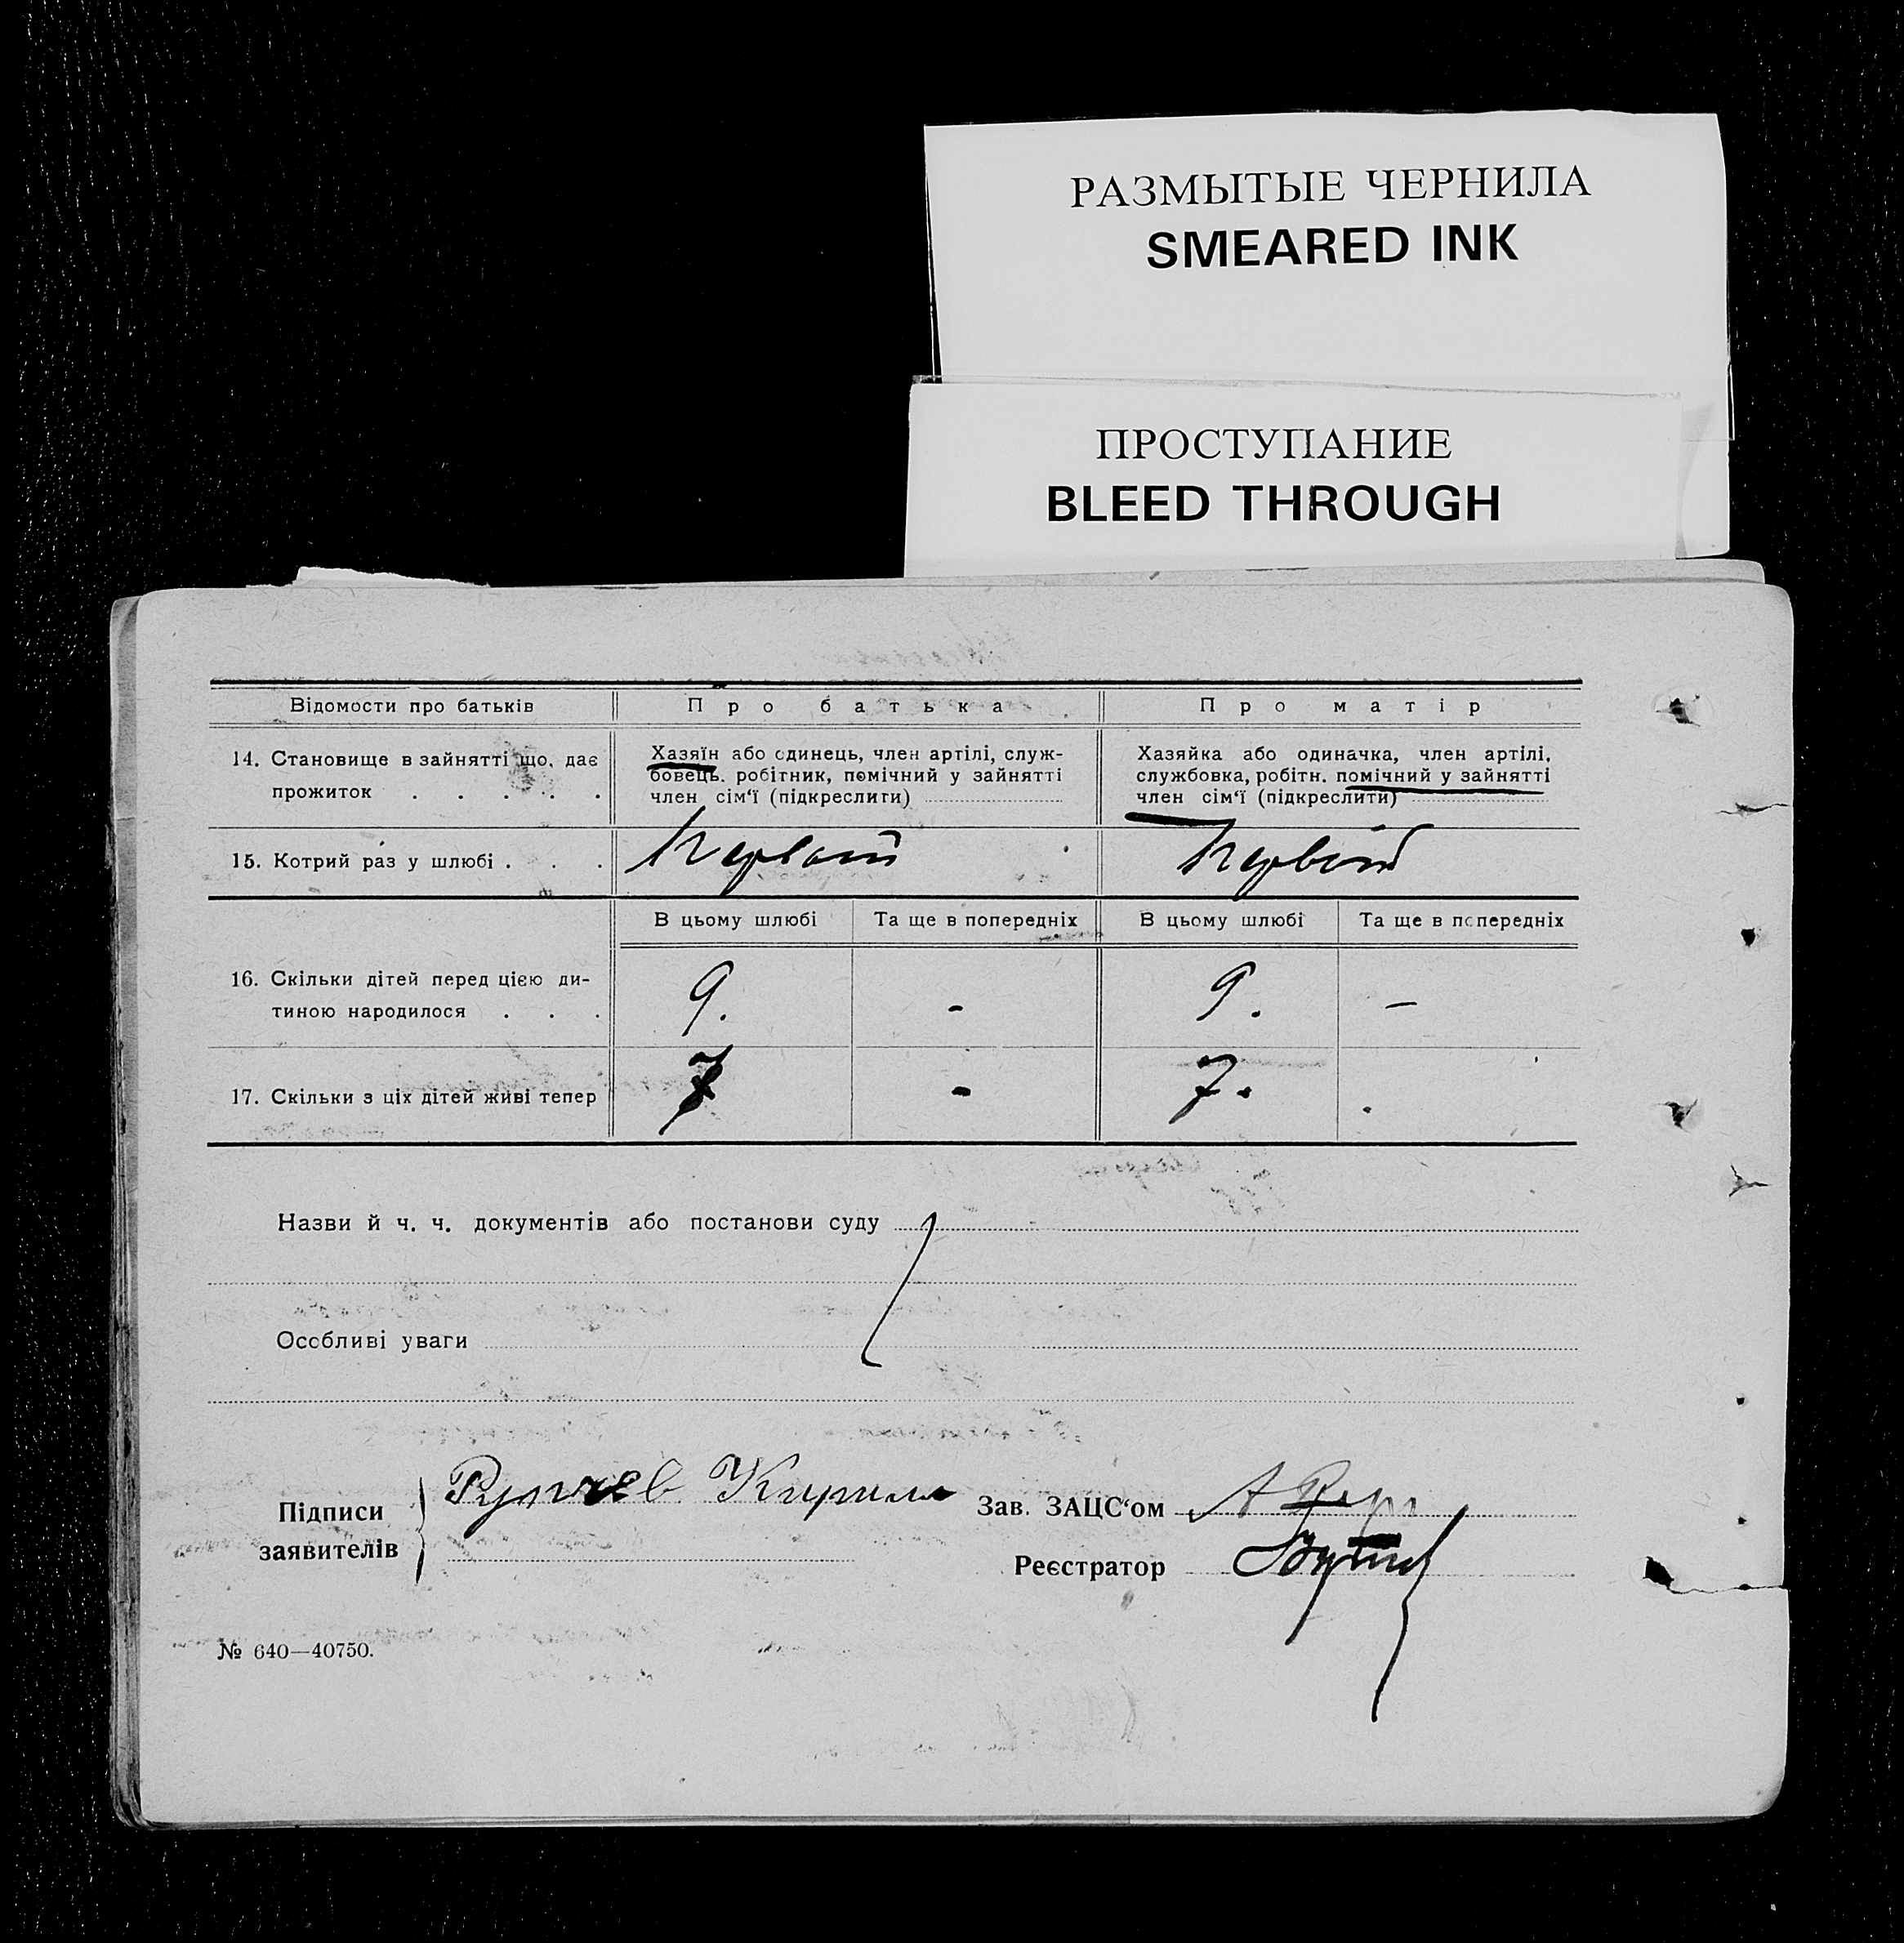 РАЗМЫТЫЕ ЧЕРНИЛА
SMEARED INK
ПРОСТУПАНИЕ
BLEED THROUGH
Відомости про батьків Про батька Про матір
14. Становище в зайнятті що, дає прожиток . . . . .
Хазяїн або єдинець, член артілі, служ-
бовець. робітник, помічний у зайнятті
член сім‘ї (підкреслити)
Хазяйка або одиначка, член артілі,
службовка, робітн. помічний у зайнятті
член сім‘ї (підкреслити)
15. Котрий раз у шлюбі . . . Первий Первий
В цьому шлюбі Та ще в попередніх В цьому шлюбі Та ще в попередніх
16. Скільки дітей перед цією ди-
тиною народилося . . . 9. - 9. —
17. Скільки з ціх дітей живі тепер 7 - 7. .
Назви й ч. ч. документів або постанови суду
Особливі уваги
Підписи
заявителів
Кирилл
Зав. ЗАЦС‘ом
Реєстратор
№ 640—40750.